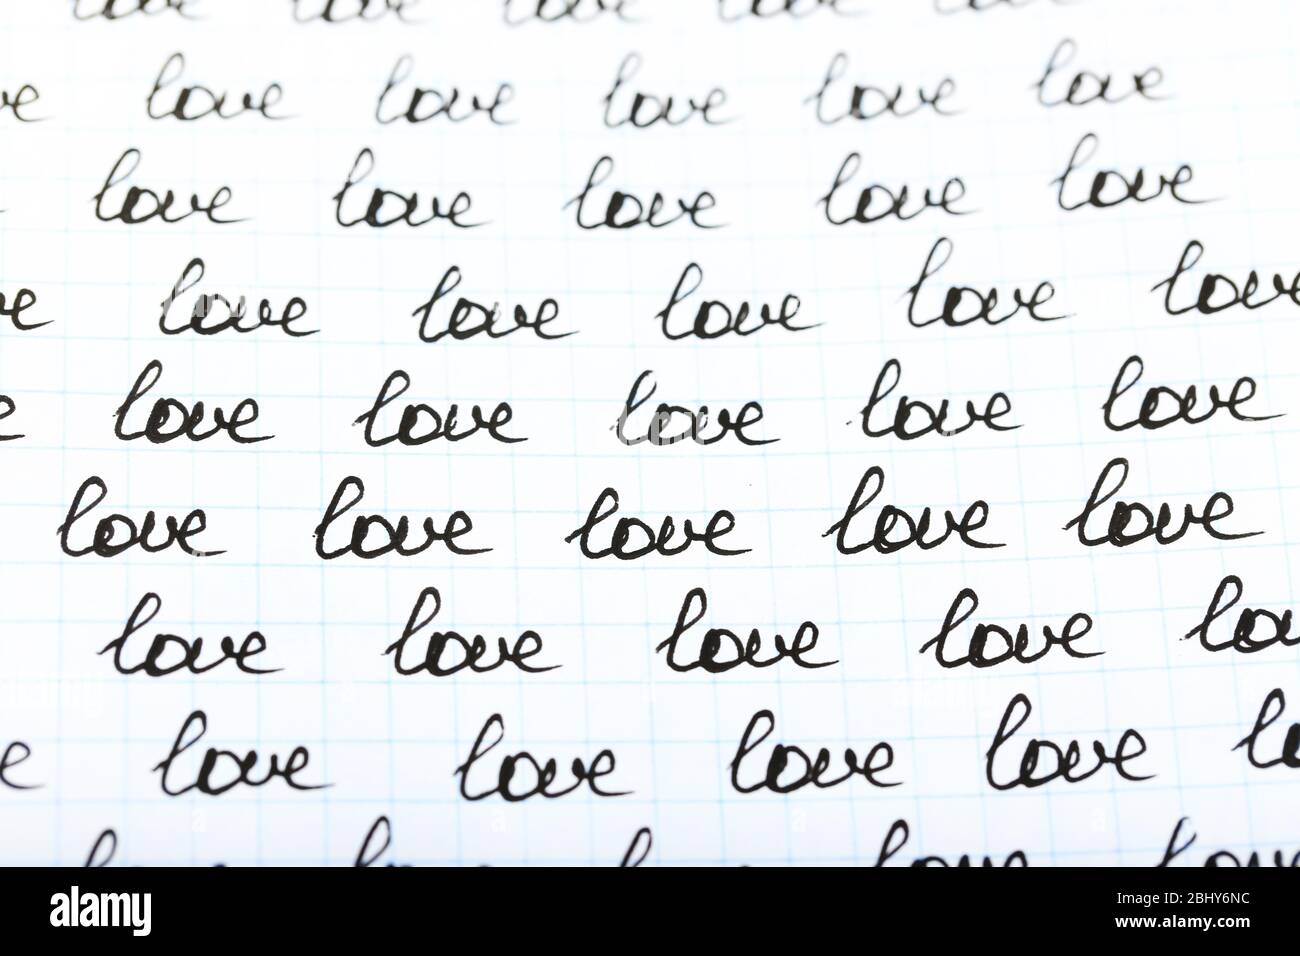 love love love love love
love love love love love
love love love love love
love love love love love
love love love love love
love love love love love
love love love love love
love love love love
alamy
Image ID: 2BHY6NC
www.alamy.com